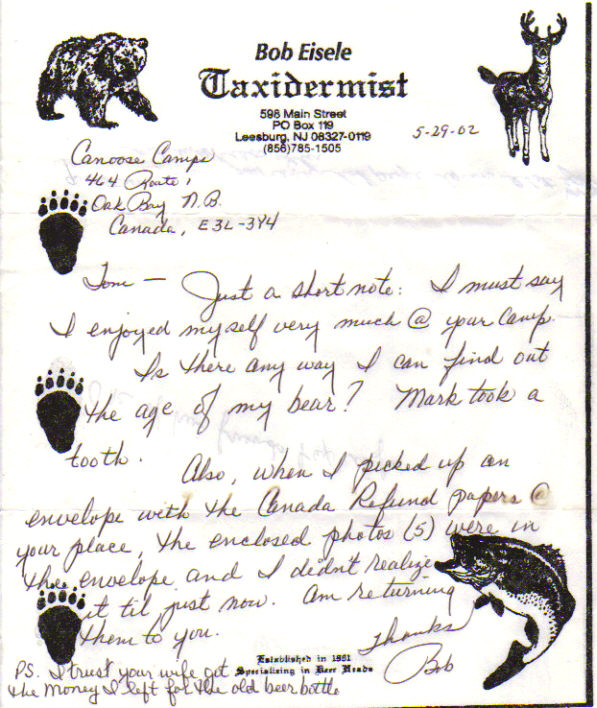 Bob Eisele
Taxidermist
596 Main Street
PO Box 119
Leesburg, NJ 08327-0119
(856)785-1505
5-29-02
Canoose Camps
464 Route 1
Oak Bay N.B.
Canada, E3L-3Y4
Tom — Just a short note: I must say
I enjoyed myself very much @ your Camp.
Is there any way I can find out
the age of my bear? Mark took a
tooth.
Also, when I picked up an
envelope with the Canada Refund papers @
your place, the enclosed photos (5) were in
the envelope and I didn't realize
it til just now. Am returning
them to you.
Thanks
Bob
Established in 1951
Specializing in Deer Heads
PS. I trust your wife got
the money I left for the old beer bottle